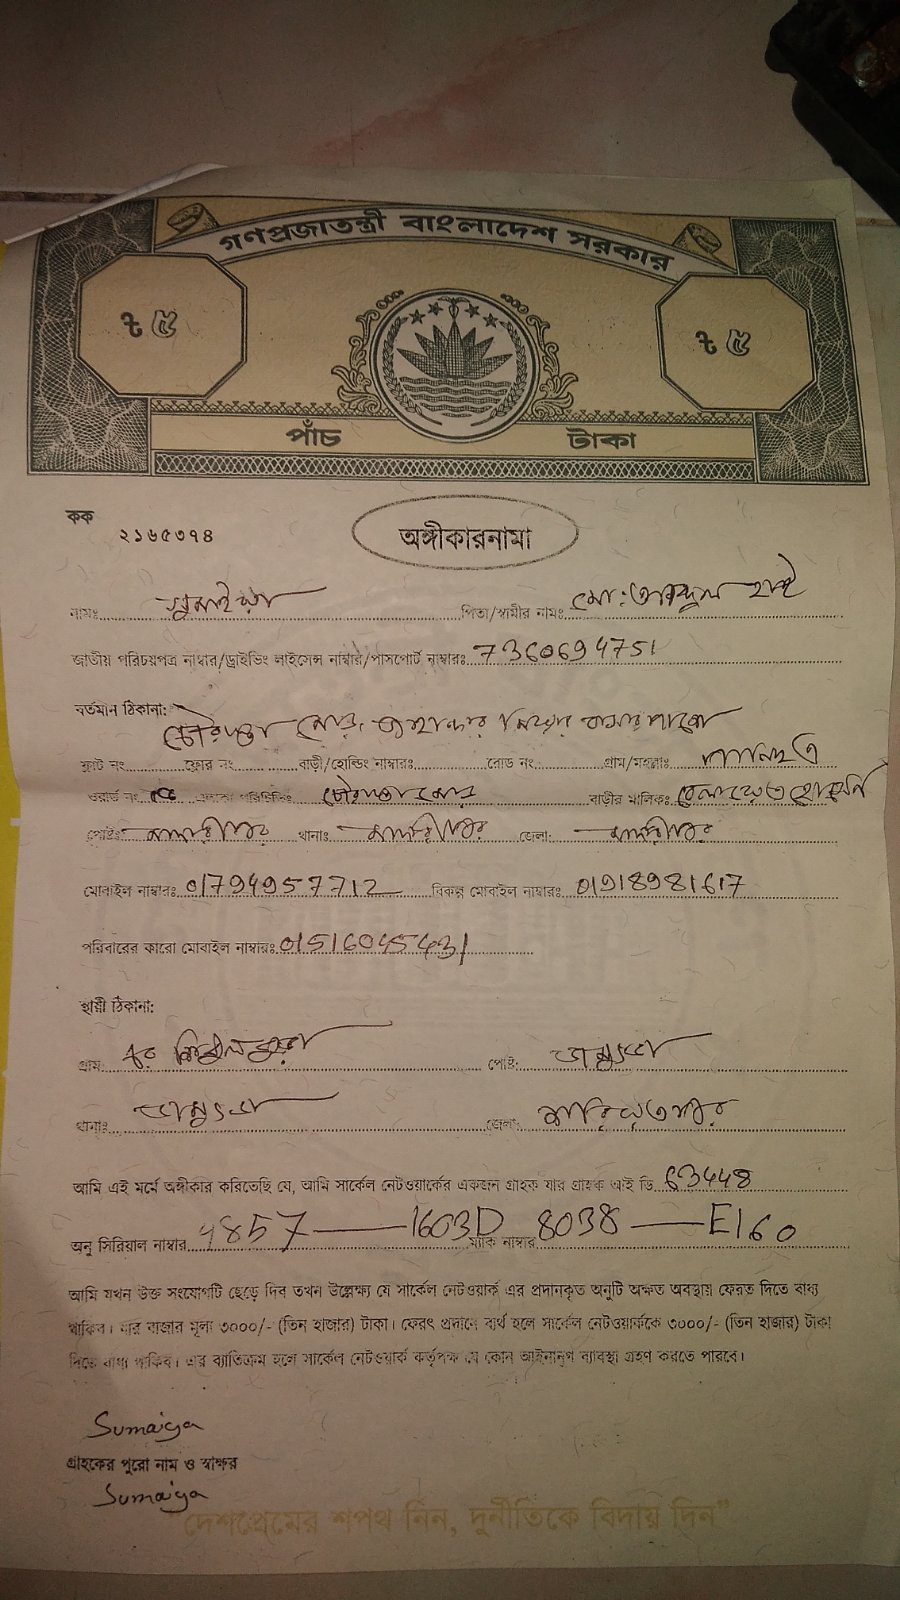 গণপ্রজাতন্ত্রী বাংলাদেশ সরকার
৳ ৫ ৳ ৫
পাঁচ টাকা
কক
২১৬৫৩৭৪
অঙ্গীকারনামা
নামঃ সুমাইয়া পিতা/স্বামীর নামঃ মো: আব্দুল হাই
জাতীয় পরিচয়পত্র নাম্বার/ড্রাইভিং লাইসেন্স নাম্বার/পাসপোর্ট নাম্বারঃ 7360694751
বর্তমান ঠিকানা:
ফ্লাট নং ফ্লোর নং বাড়ী/হোল্ডিং নাম্বারঃ রোড নং গ্রাম/মহল্লাঃ
ওয়ার্ড নং বাড়ীর মালিকঃ বেলায়েত হোসেন
পোষ্টঃ মাদারীপুর থানাঃ মাদারীপুর জেলা: মাদারীপুর
মোবাইল নাম্বারঃ 01794957712 বিকল্প মোবাইল নাম্বারঃ 01918981617
পরিবারের কারো মোবাইল নাম্বারঃ 01516045431
স্থায়ী ঠিকানা:
গ্রাম: চর পোষ্ট:
থানাঃ জেলা: শরিয়তপুর
আমি এই মর্মে অঙ্গীকার করিতেছি যে, আমি সার্কেল নেটওয়ার্কের একজন গ্রাহক যার গ্রাহক আই ডি 63448
অনু সিরিয়াল নাম্বার 4857 — 1603D ম্যাক নাম্বার 8038 — E160
আমি যখন উক্ত সংযোগটি ছেড়ে দিব তখন উল্লেক্ষ্য যে সার্কেল নেটওয়ার্ক এর প্রদানকৃত অনুটি অক্ষত অবস্থায় ফেরত দিতে বাধ্য
থাকিব। যার বাজার মূল্য ৩০০০/- (তিন হাজার) টাকা। ফেরৎ প্রদানে ব্যর্থ হলে সার্কেল নেটওয়ার্ককে ৩০০০/- (তিন হাজার) টাকা
দিতে বাধ্য থাকিব। এর ব্যতিক্রম হলে সার্কেল নেটওয়ার্ক কর্তৃপক্ষ যে কোন আইনানুগ ব্যাবস্থা গ্রহণ করতে পারবে।
Sumaiya
গ্রাহকের পুরো নাম ও স্বাক্ষর
Sumaiya
"দেশপ্রেমের শপথ নিন, দুর্নীতিকে বিদায় দিন"